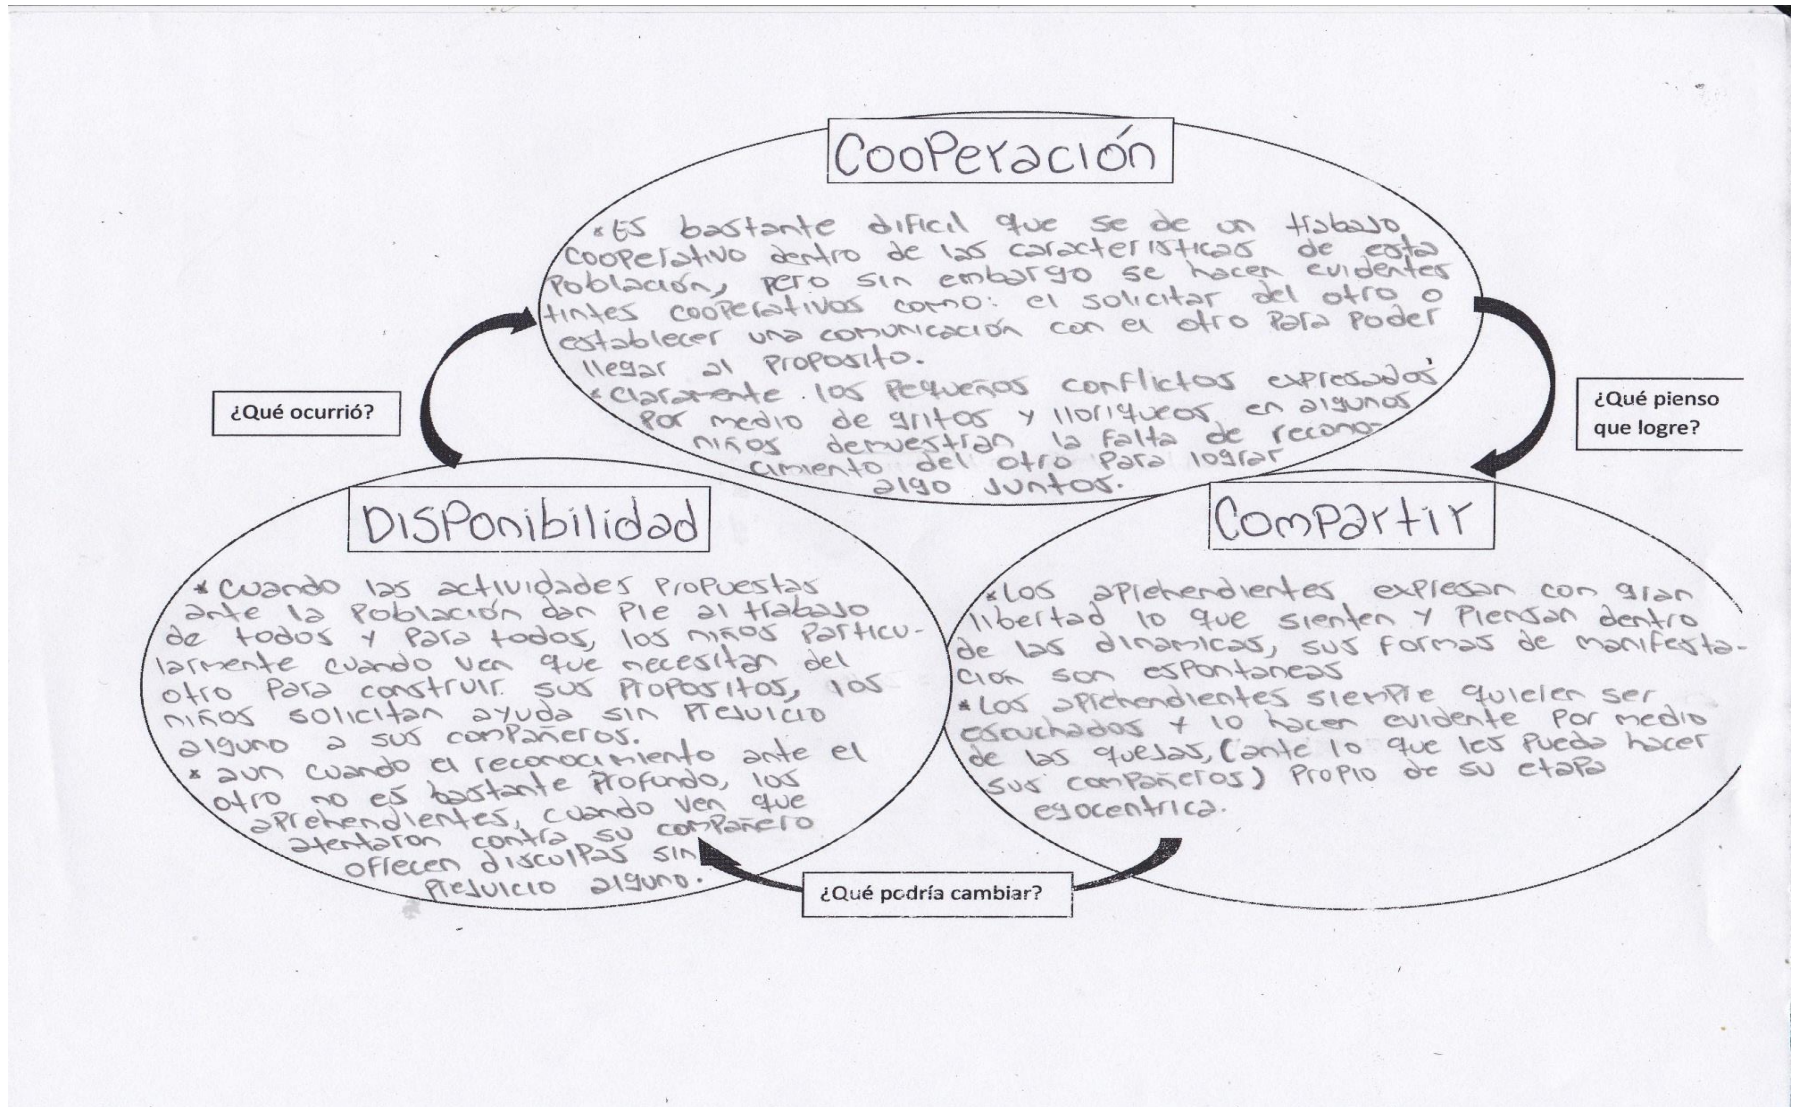 Cooperación
* Es bastante dificil que se de un trabajo
cooperativo dentro de las caracteristicas de esta
población, pero sin embargo se hacen evidentes
tintes cooperativos como: el solicitar del otro o
establecer una comunicación con el otro para poder
llegar al proposito.
* Claramente los pequeños conflictos expresados
por medio de gritos y lloriqueos en algunos
niños demuestran la falta de recono-
cimiento del otro para lograr
algo juntos.
¿Qué ocurrió?
¿Qué pienso
que logre?
Disponibilidad
* Cuando las actividades propuestas
ante la población dan pie al trabajo
de todos y para todos, los niños particu-
larmente cuando ven que necesitan del
otro para construir sus propositos, los
niños solicitan ayuda sin prejuicio
alguno a sus compañeros.
* aun cuando el reconocimiento ante el
otro no es bastante profundo, los
aprehendientes, cuando ven que
atentaron contra su compañero
ofrecen disculpas sin
prejuicio alguno.
Compartir
* Los aprehendientes expresan con gran
libertad lo que sienten y piensan dentro
de las dinamicas, sus formas de manifesta-
ción son espontaneas
* Los aprehendientes siempre quieren ser
escuchados y lo hacen evidente por medio
de las quejas, (ante lo que les pueda hacer
sus compañeros) propio de su etapa
egocentrica.
¿Qué podría cambiar?